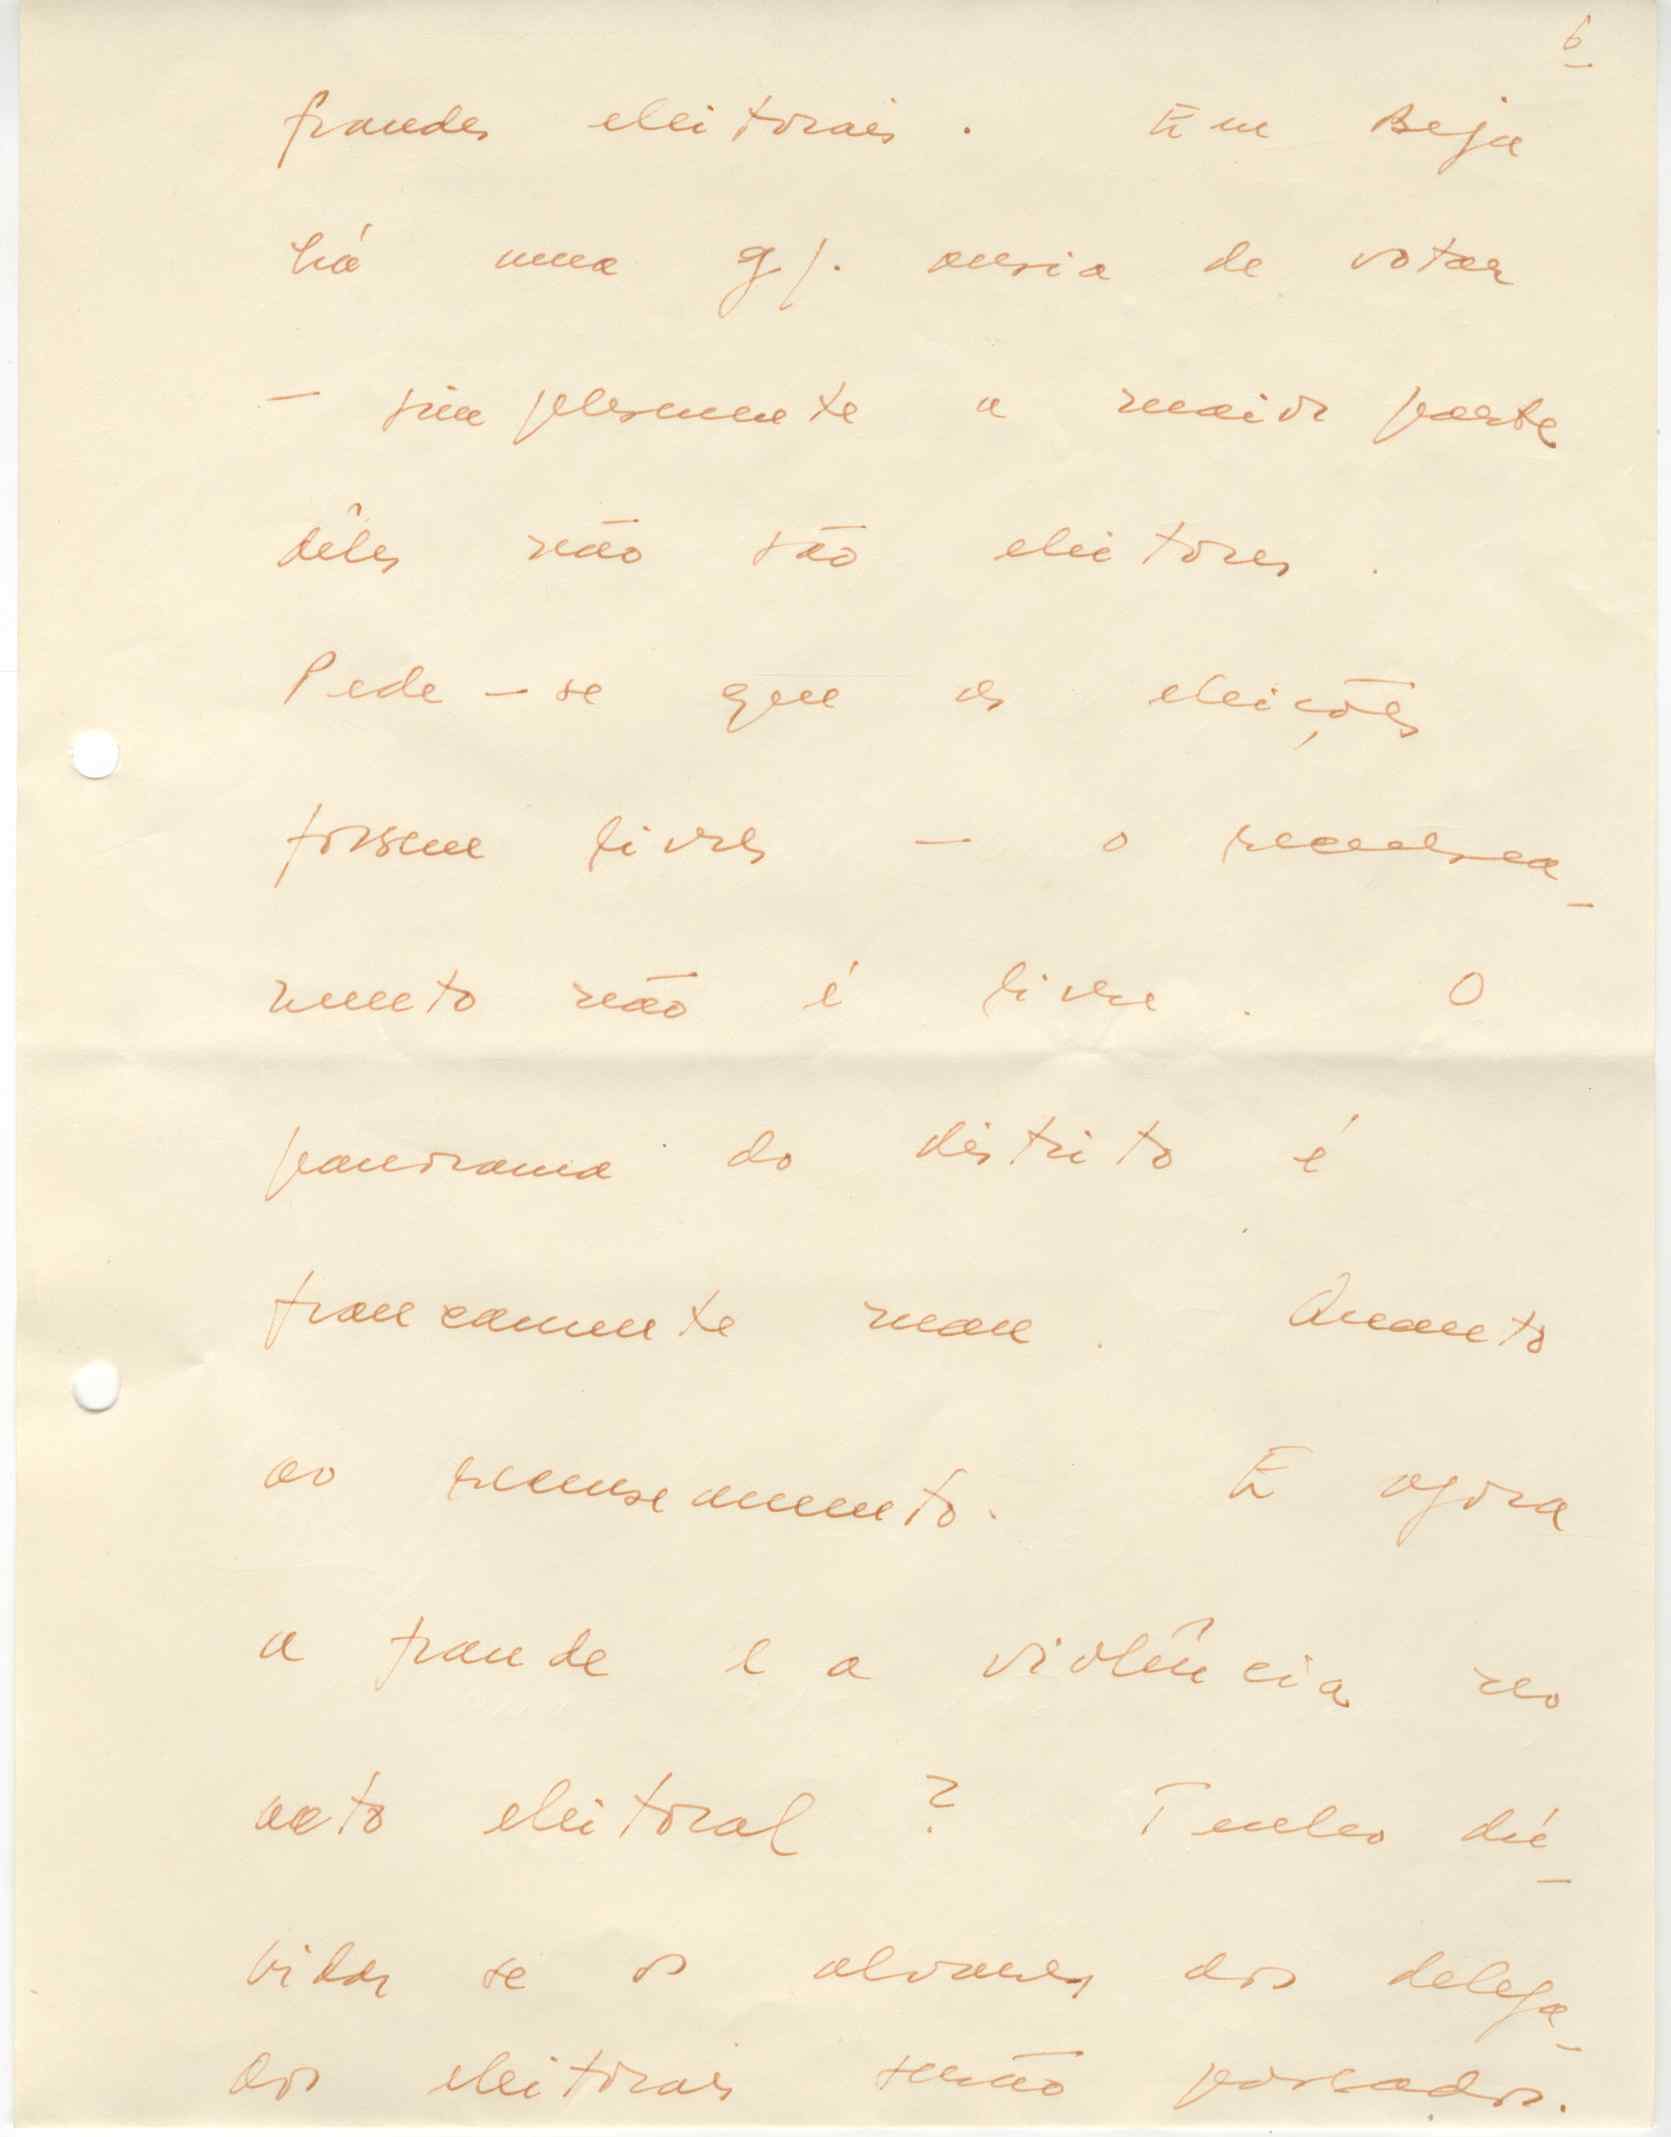 6
fraudes eleitorais. Em Beja
há uma g/. ansia de votar
- simplesmente a maior parte
dêles não são eleitores.
Pede-se que as eleições
fossem livres - o recensea-
mento não é livre. O
panorama do distrito é
francamente mau. Quanto
ao recenseamento. E agora
a fraude e a violência no
acto eleitoral? Tenho dú-
vidas se os alvares dos delega-
dos eleitorais serão passados.